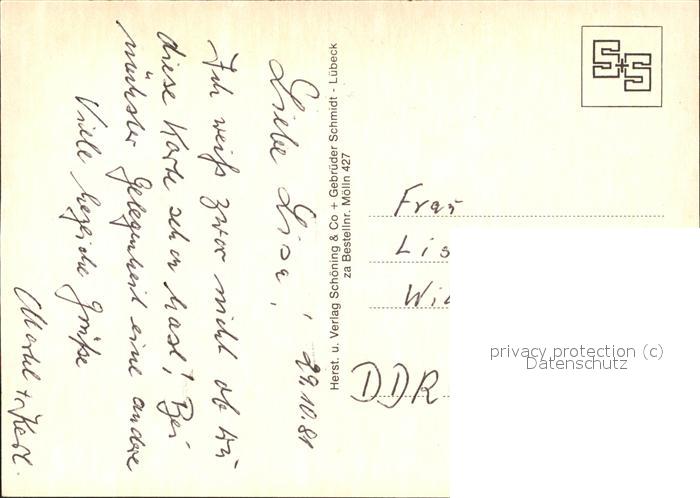 Liebe Lisa,
29.10.81
Ich weiß zwar nicht ob Du
diese Karte schon hast! Bei
nächster Gelegenheit eine andere
Viele herzliche Grüße
+ Karl.
Herst. u. Verlag Schöning & Co + Gebrüder Schmidt - Lübeck
za Bestellnr. Mölln 427
S+S
Frau
Lis
Wi
DDR
privacy protection (c)
Datenschutz